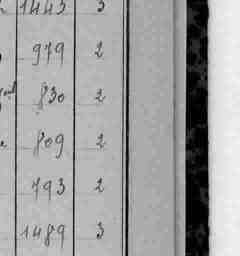 1443 3
979 2
830 2
809 2
793 2
1489 3